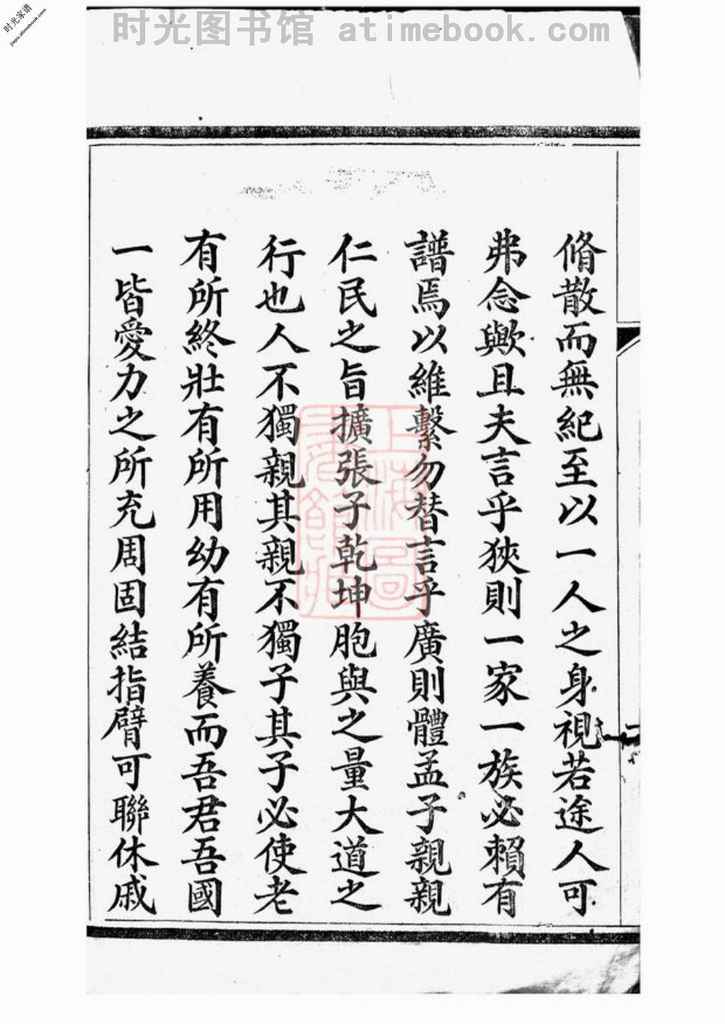 时光图书馆 atimebook.com
时光家谱
脩散而無紀至以一人之身視若途人可
弗念歟且夫言乎狹則一家一族必賴有
譜焉以維繫勿替言乎廣則體孟子親親
仁民之旨擴張子乾坤胞與之量大道之
行也人不獨親其親不獨子其子必使老
有所終壯有所用幼有所養而吾君吾國
一皆愛力之所充周固結指臂可聯休戚
上海圖
書館藏